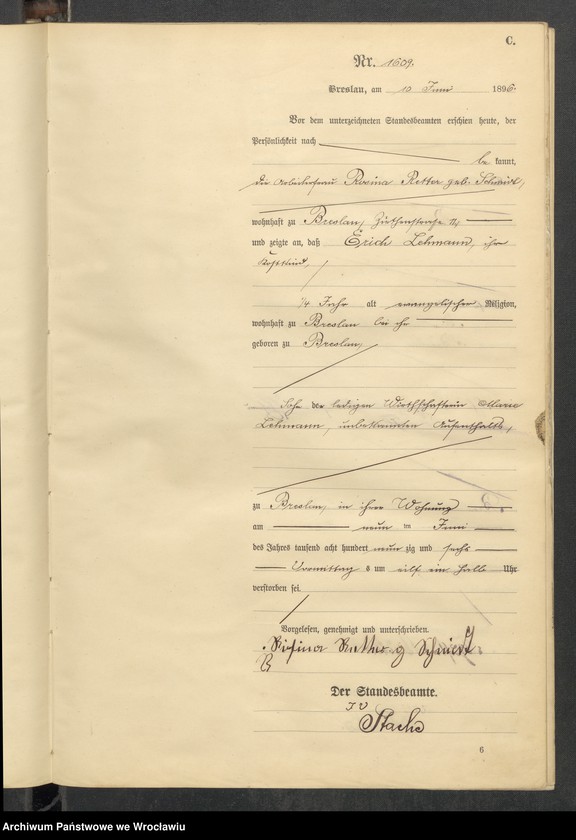 C.
Nr. 1609.
Breslau, am 10. Juni 1896.
Vor dem unterzeichneten Standesbeamten erschien heute, der
Persönlichkeit nach
be kannt,
die Arbeiterfrau Rosina Retter geb. Schmidt,
wohnhaft zu Breslau, 11,
und zeigte an, daß Erich Lehmann, ihr
Kostkind,
1/4 Jahr alt evangelischer Religion,
wohnhaft zu Breslau bei ihr
geboren zu Breslau,
Sohn der ledigen Wirthschafterin Marie
Lehmann, unbekannten Aufenthalts,
zu Breslau, in ihrer Wohnung
am neun ten Juni
des Jahres tausend acht hundert neun zig und sechs
Vormittag s um eilf ein halb Uhr
verstorben sei.
Vorgelesen, genehmigt und unterschrieben.
Rosina g Schmidt
Der Standesbeamte.
JV
Stache
6
Archiwum Państwowe we Wrocławiu